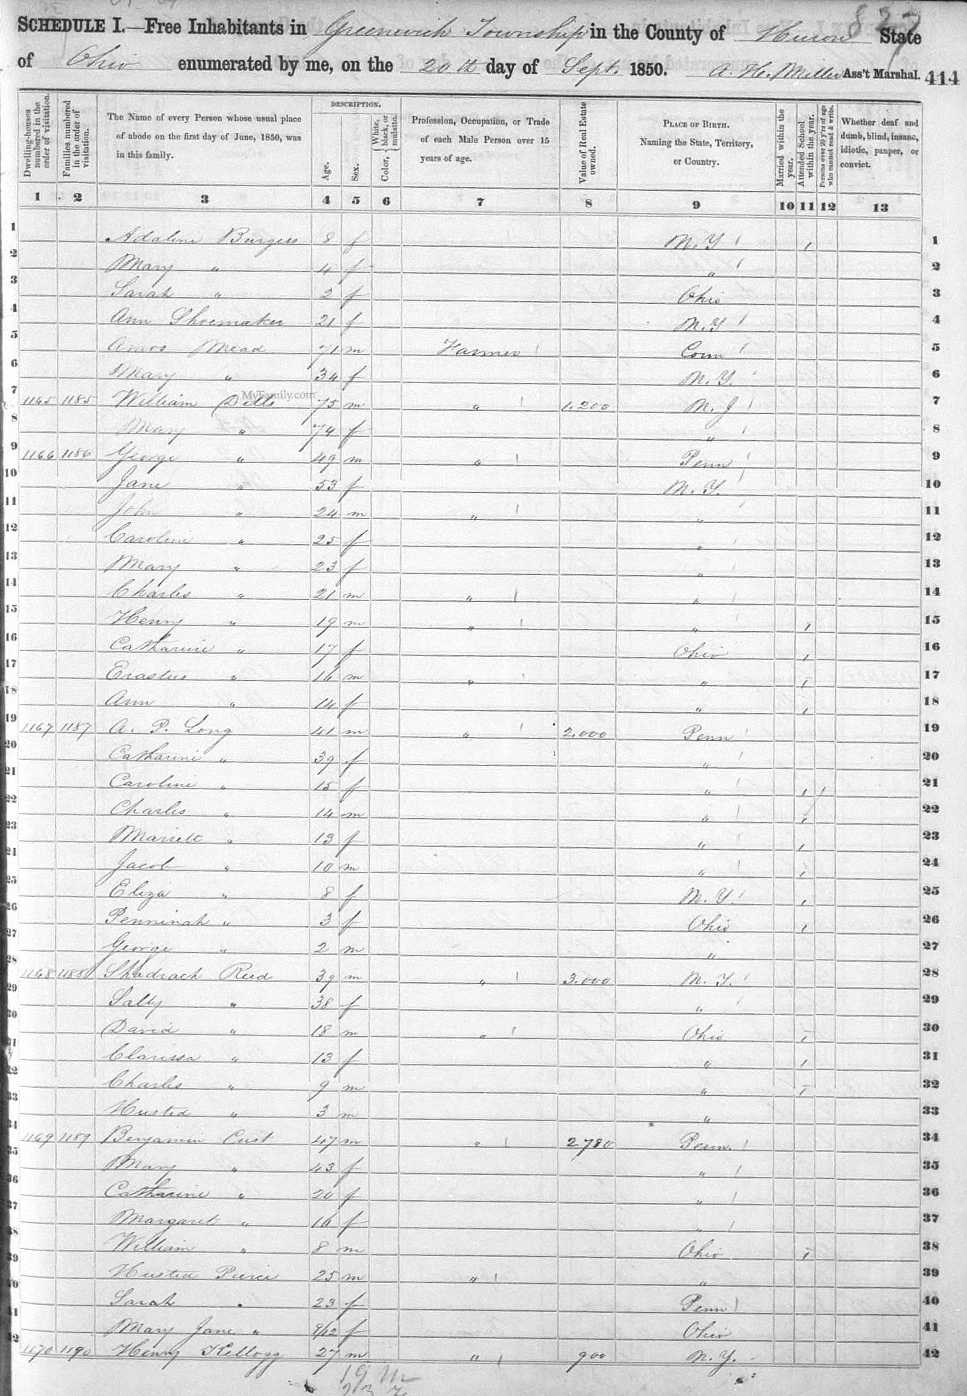 827
SCHEDULE I.—Free Inhabitants in Greenwich Township in the County of Huron State
of Ohio enumerated by me, on the 20th day of Sept. 1850. A. H. Miller Ass't Marshal. 414
Dwelling-houses numbered in the order of visitation.
Families numbered in the order of visitation.
The Name of every Person whose usual place of abode on the first day of June, 1850, was in this family.
DESCRIPTION.
Age.
Sex.
Color, White, black, or mulatto.
Profession, Occupation, or Trade of each Male Person over 15 years of age.
Value of Real Estate owned.
PLACE OF BIRTH. Naming the State, Territory, or Country.
Married within the year.
Attended School within the year.
Persons over 20 y'rs of age who cannot read & write.
Whether deaf and dumb, blind, insane, idiotic, pauper, or convict.
1 2 3 4 5 6 7 8 9 10 11 12 13
1 Adaline Burgess 8 f N.Y 1
2 Mary " 4 f " 2
3 Sarah " 2 f Ohio 3
4 Ann Shoemaker 21 f N.Y 4
5 Amos Mead 71 m Farmer Conn 5
6 Mary " 34 f N.Y. 6
7 1165 1185 William 75 m " 1,200 N.J 7
MyFamily.com
8 Mary " 74 f " 8
9 1166 1186 George " 49 m " Penn 9
10 Jane " 53 f N.Y. 10
11 John " 24 m " " 11
12 Caroline " 25 f " 12
13 Mary " 23 f " 13
14 Charles " 21 m " " 14
15 Henry " 19 m " " 15
16 Catharine " 17 f Ohio 16
17 Erastus " 16 m " " 17
18 Ann " 14 f " 18
19 1167 1187 A. P. Long 41 m " 2,000 Penn 19
20 Catharine " 39 f " 20
21 Caroline " 15 f " 21
22 Charles " 14 m " 22
23 Mariett " 13 f " 23
24 Jacob " 10 m " 24
25 Eliza " 8 f N.Y. 25
26 Penninah " 3 f Ohio 26
27 George " 2 m " 27
28 1168 1188 Shadrach Reed 39 m " 3,000 N.Y. 28
29 Sally " 38 f " 29
30 David " 18 m " Ohio 30
31 Clarissa " 13 f " 31
32 Charles " 9 m " 32
33 Husted " 3 m " 33
34 1169 1189 Benjamin 47 m " 2780 Penn. 34
35 Mary " 43 f " 35
36 Catharine " 20 f " 36
37 Margaret " 16 f " 37
38 William " 8 m Ohio 38
39 Husted Peirce 25 m " " 39
40 Sarah " 23 f Penn 40
41 Mary Jane " 9/12 f Ohio 41
42 1170 1190 Henry Kellogg 27 m " 900 N.Y. 42
19 m